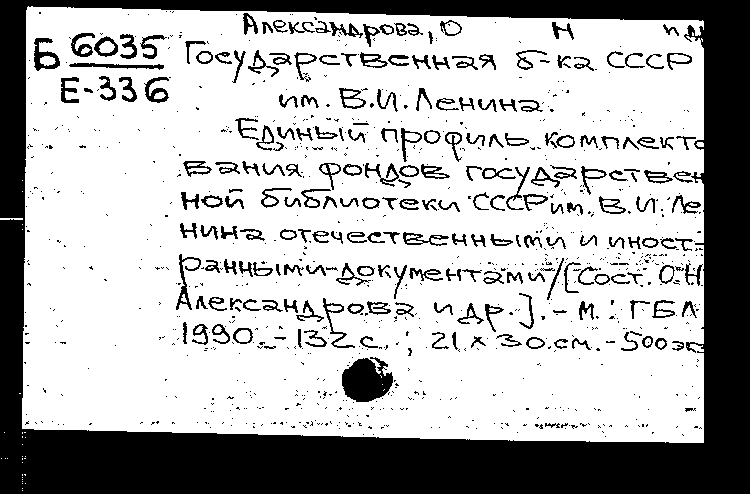 Александрова, О Н и др
Б 6035
Е-336
Государственная б-ка СССР
им. В.И. Ленина.
Единый профиль комплекто
вания фондов государствен
ной библиотеки СССР им. В.И. Ле
нина отечественными и иност-
ранными документами/[Сост. О.Н
Александрова и др.]. - М.: ГБЛ
1990. - 132 с. ; 21 x 30 см. - 500 эк